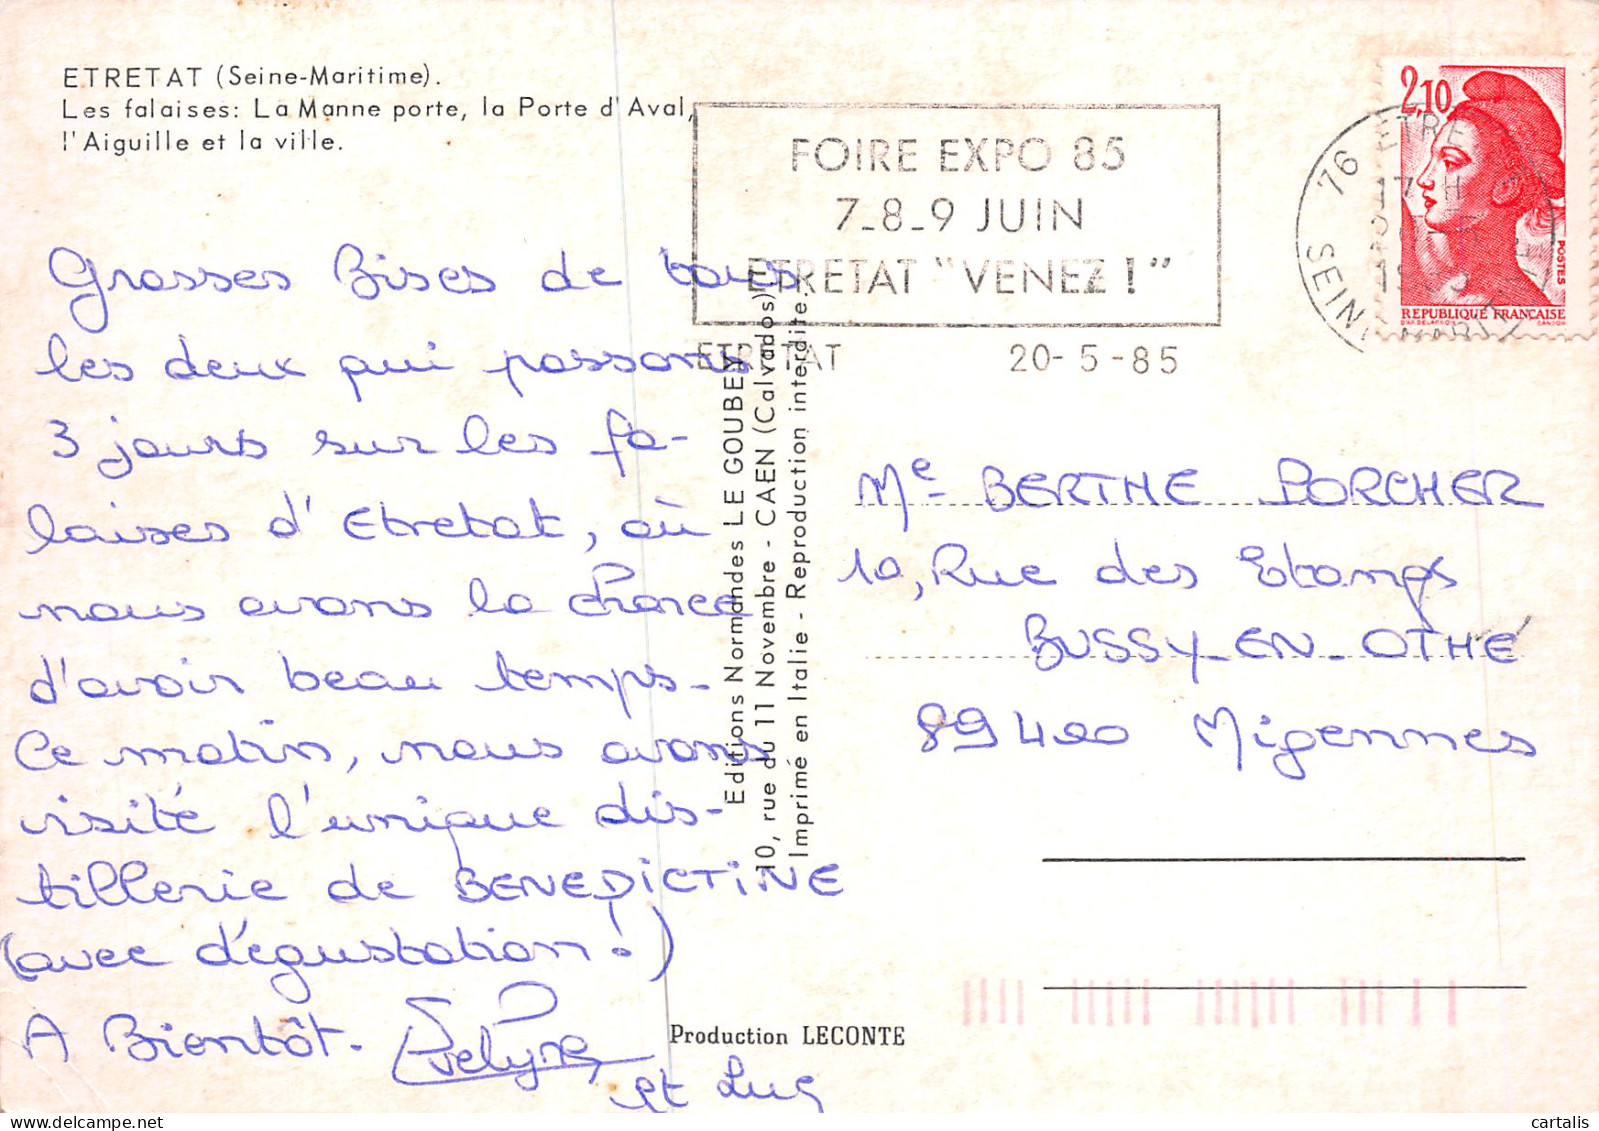 ETRETAT (Seine-Maritime).
Les falaises: La Manne porte, la Porte d'Aval,
l'Aiguille et la ville.
FOIRE EXPO 85
7-8-9 JUIN
ETRETAT "VENEZ !"
ETRETAT 20-5-85
76 ETRE
17 H
SEINE MARITIME
2,10
POSTES
REPUBLIQUE FRANÇAISE
Grosses Bises de tous
les deux qui passons
3 jours sur les fa-
laises d'Etretat, où
nous avons la chance
d'avoir beau temps.
Ce matin, nous avons
visité l'unique dis-
tillerie de BENEDICTINE
(avec dégustation !)
A Bientôt. Evelyne
et Luc
Editions Normandes LE GOUBEY
10, rue du 11 Novembre - CAEN (Calvados)
Imprimé en Italie - Reproduction interdite.
Me BERTHE PORCHER
10, Rue des Etangs
BUSSY-EN-OTHE
89400 Migennes
Production LECONTE
cartalis